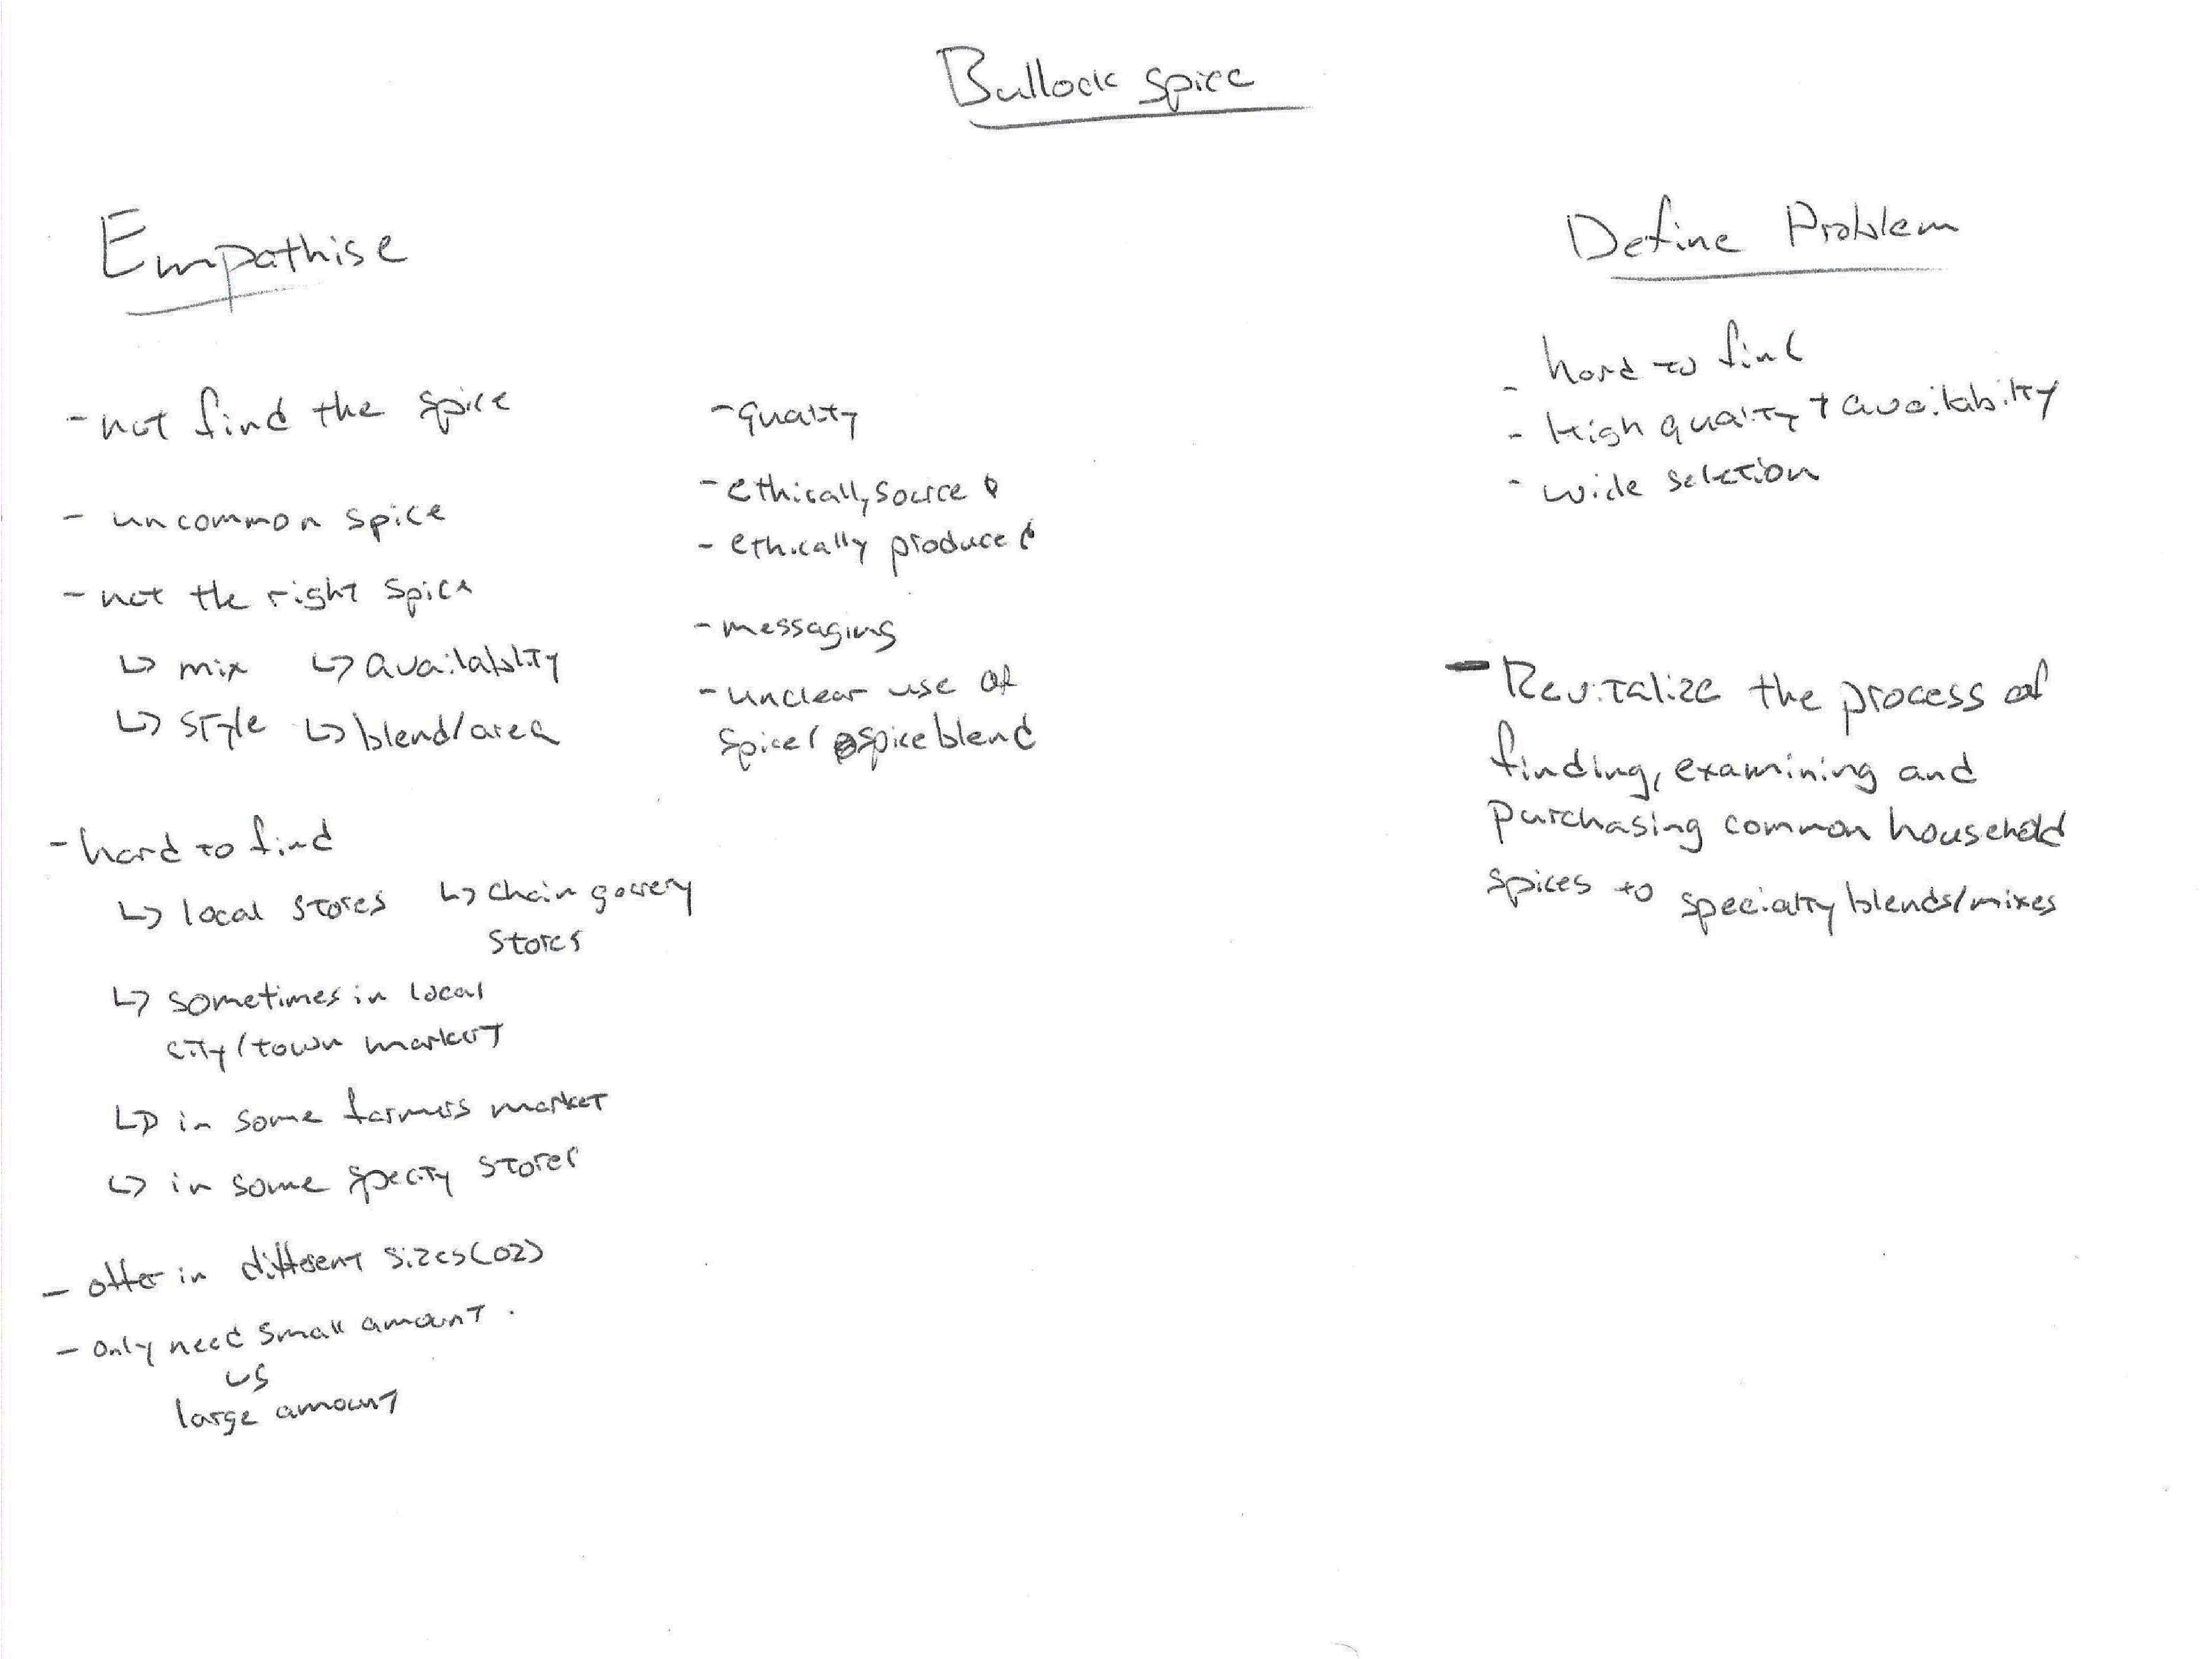 Bullock Spice
Empathise
- not find the spice
- uncommon spice
- not the right spice
↳ mix ↳ availablty
↳ style ↳ blend/area
- hard to find
↳ local stores ↳ chain gocrery
stores
↳ sometimes in local
city/town market
↳ in some farmers market
↳ in some specity stores
- offer in different sizes (oz)
- only need small amount.
vs
large amount
- qualty
- ethically source d
- ethically produced
- messaging
- unclear use of
spice/ spice blend
Define Problem
- hard to find
- High quality + availability
- wide seletion
- Revitalize the process of
finding, examining and
purchasing common household
spices to specialty blends/mixes